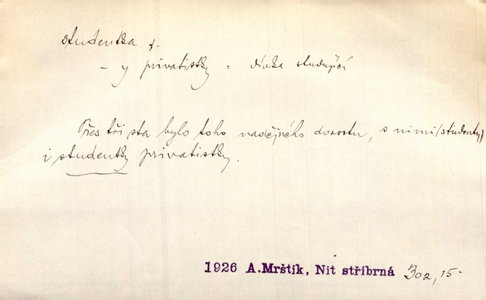 studentka f.
- y privatistky = dívka studující
Přes tři sta bylo toho nadějného dorostu, s nimi (studenty)
i studentky privatistky.
1926 A.Mrštík, Nit stříbrná 302, 15